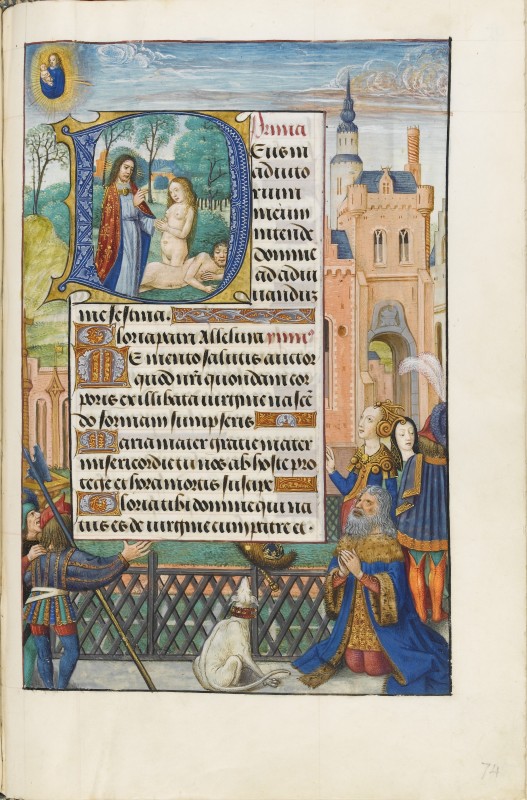 Prima
Deus in
adiuto
rium
meum
intende
domine
ad adiu
uandū
me festina.
Gloria patri Alleluia ymnꝰ
Memento salutis auctor
quod nr̄i quondam cor
poris ex illibata uirgine nascē
do formam sumpseris
Maria mater gratie mater
misericordie tu nos ab hoste pro
tege et hora mortis suscipe
Gloria tibi domine qui na
tus es de uirgine cum patre et
74